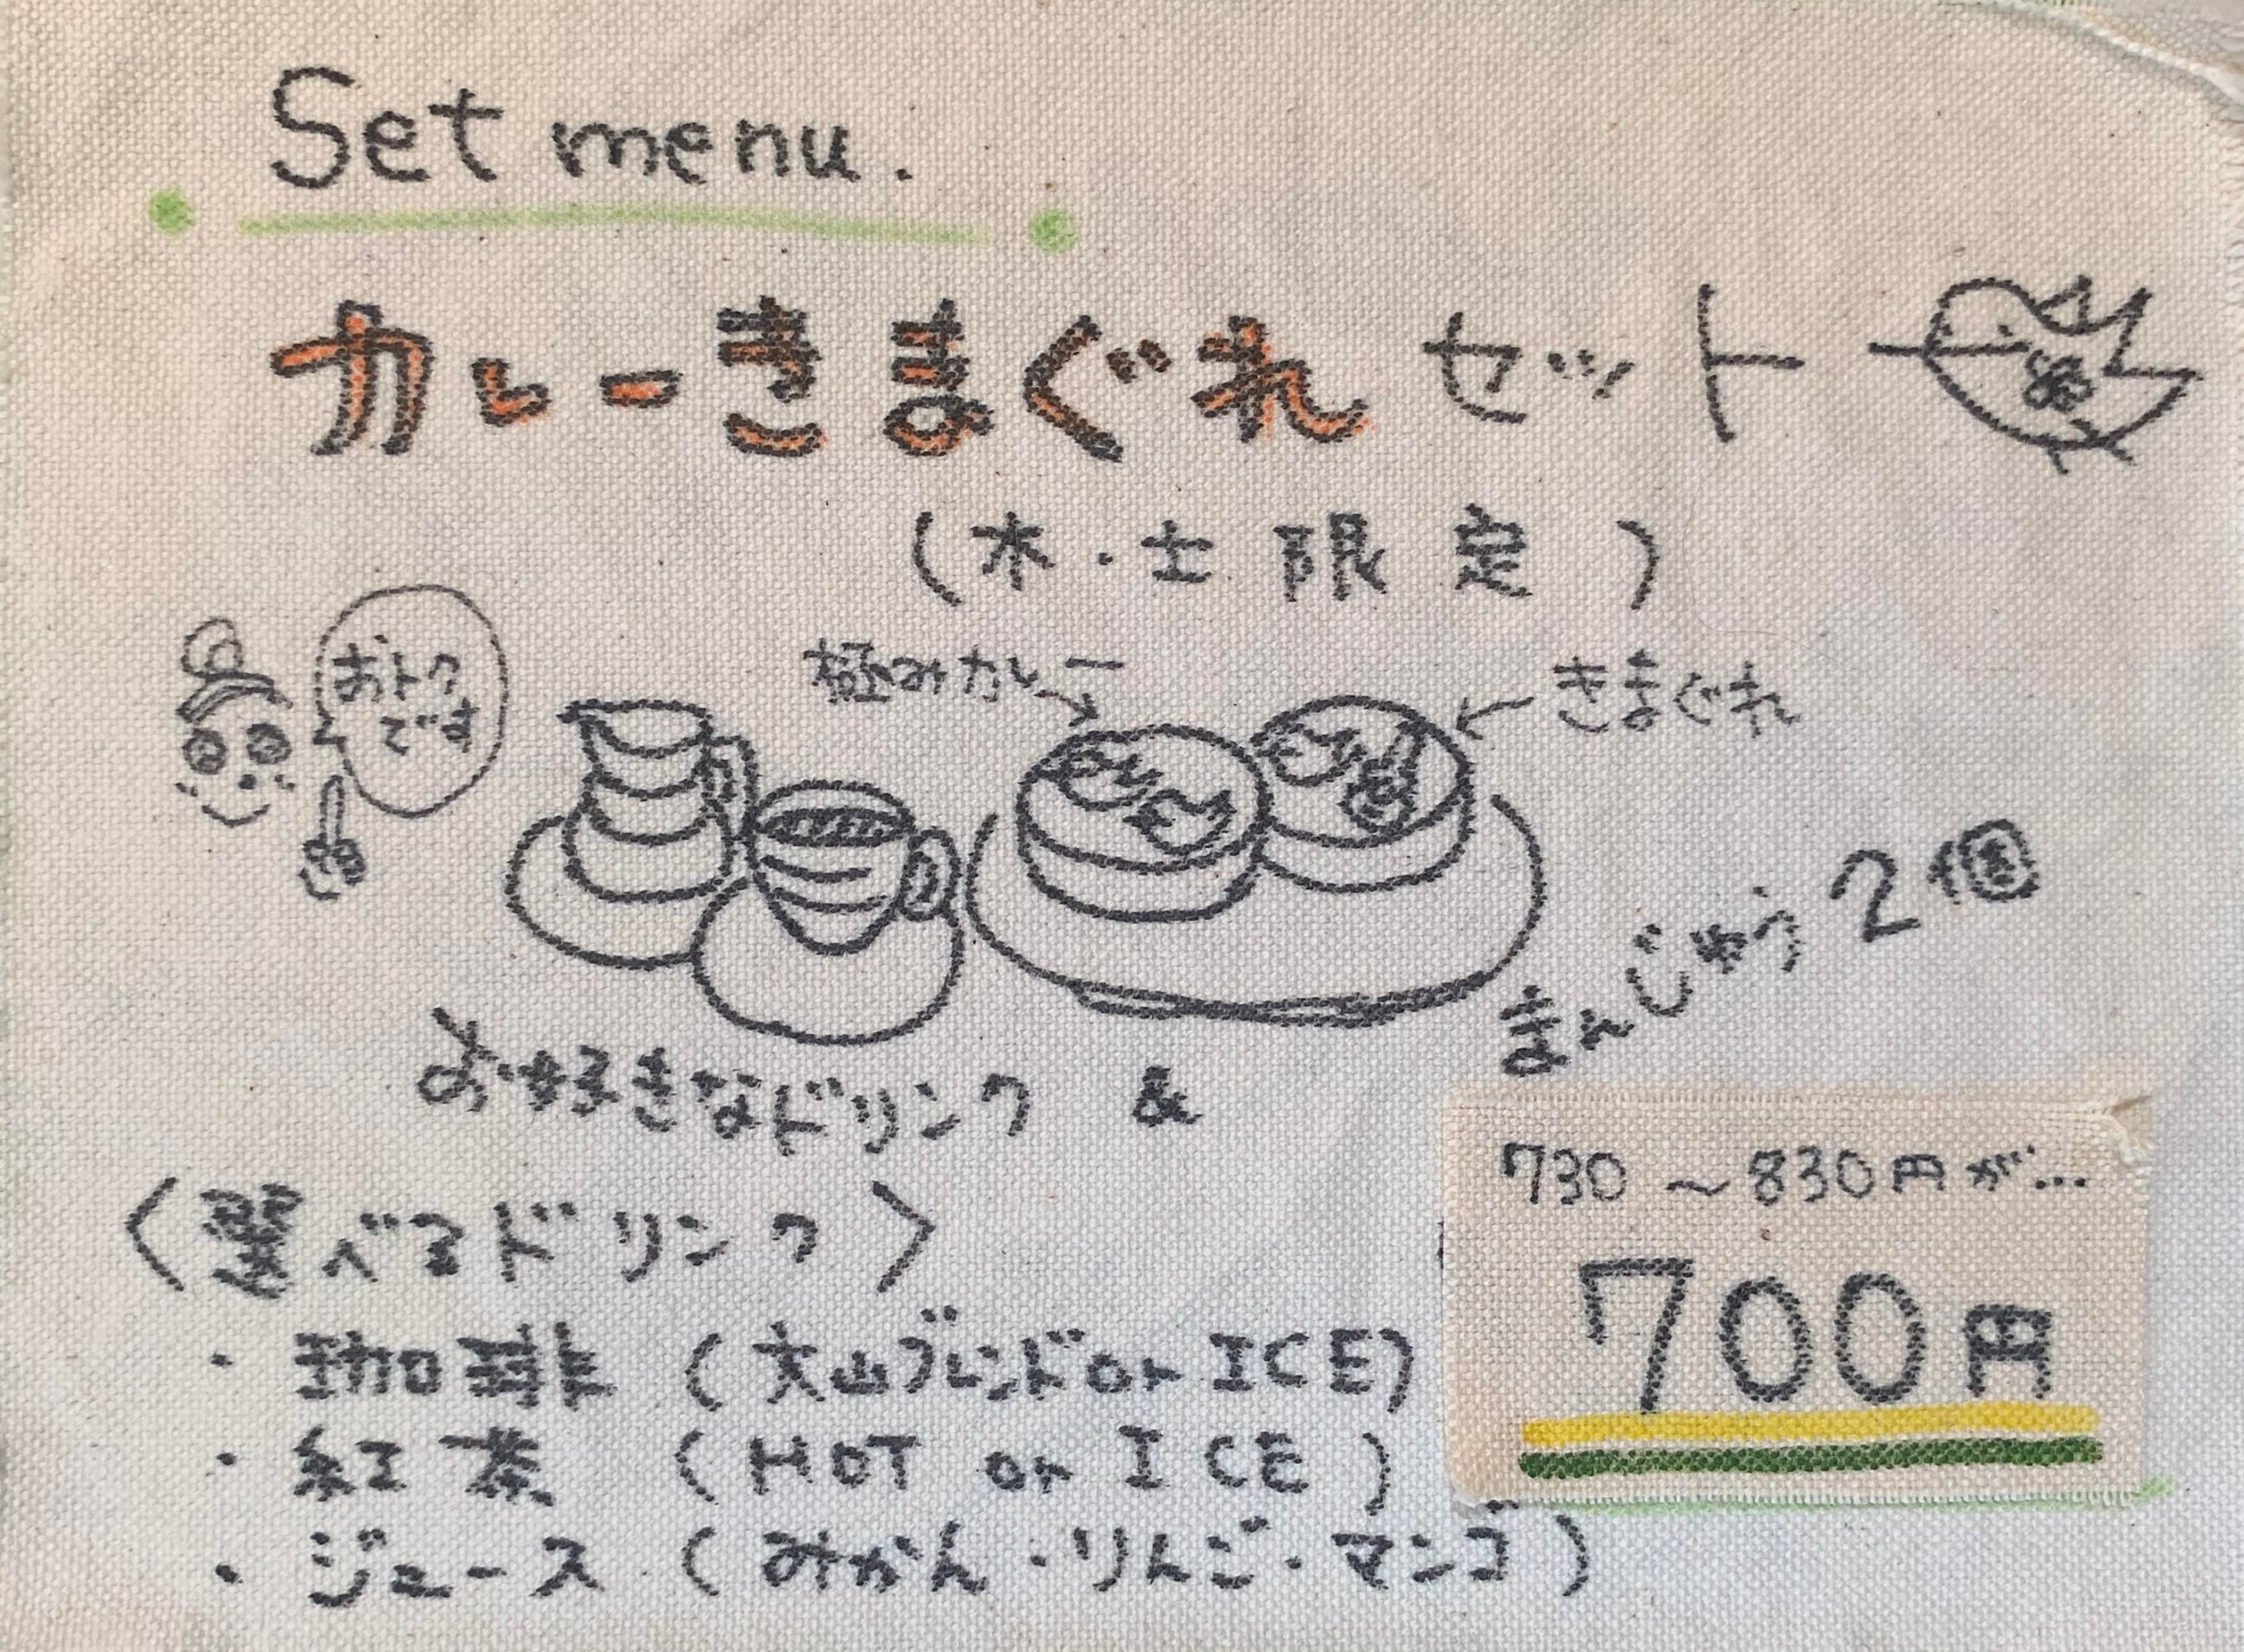 Set menu.
カレーきまぐれセット
(木・土限定)
おトク
です
極みカレー
きまぐれ
まんじゅう2個
お好きなドリンク &
730~830円が...
700円
〈選べるドリンク〉
・珈琲 (大山ブレンド or ICE)
・紅茶 (HOT or ICE)
・ジュース (みかん・りんご・マンゴ)